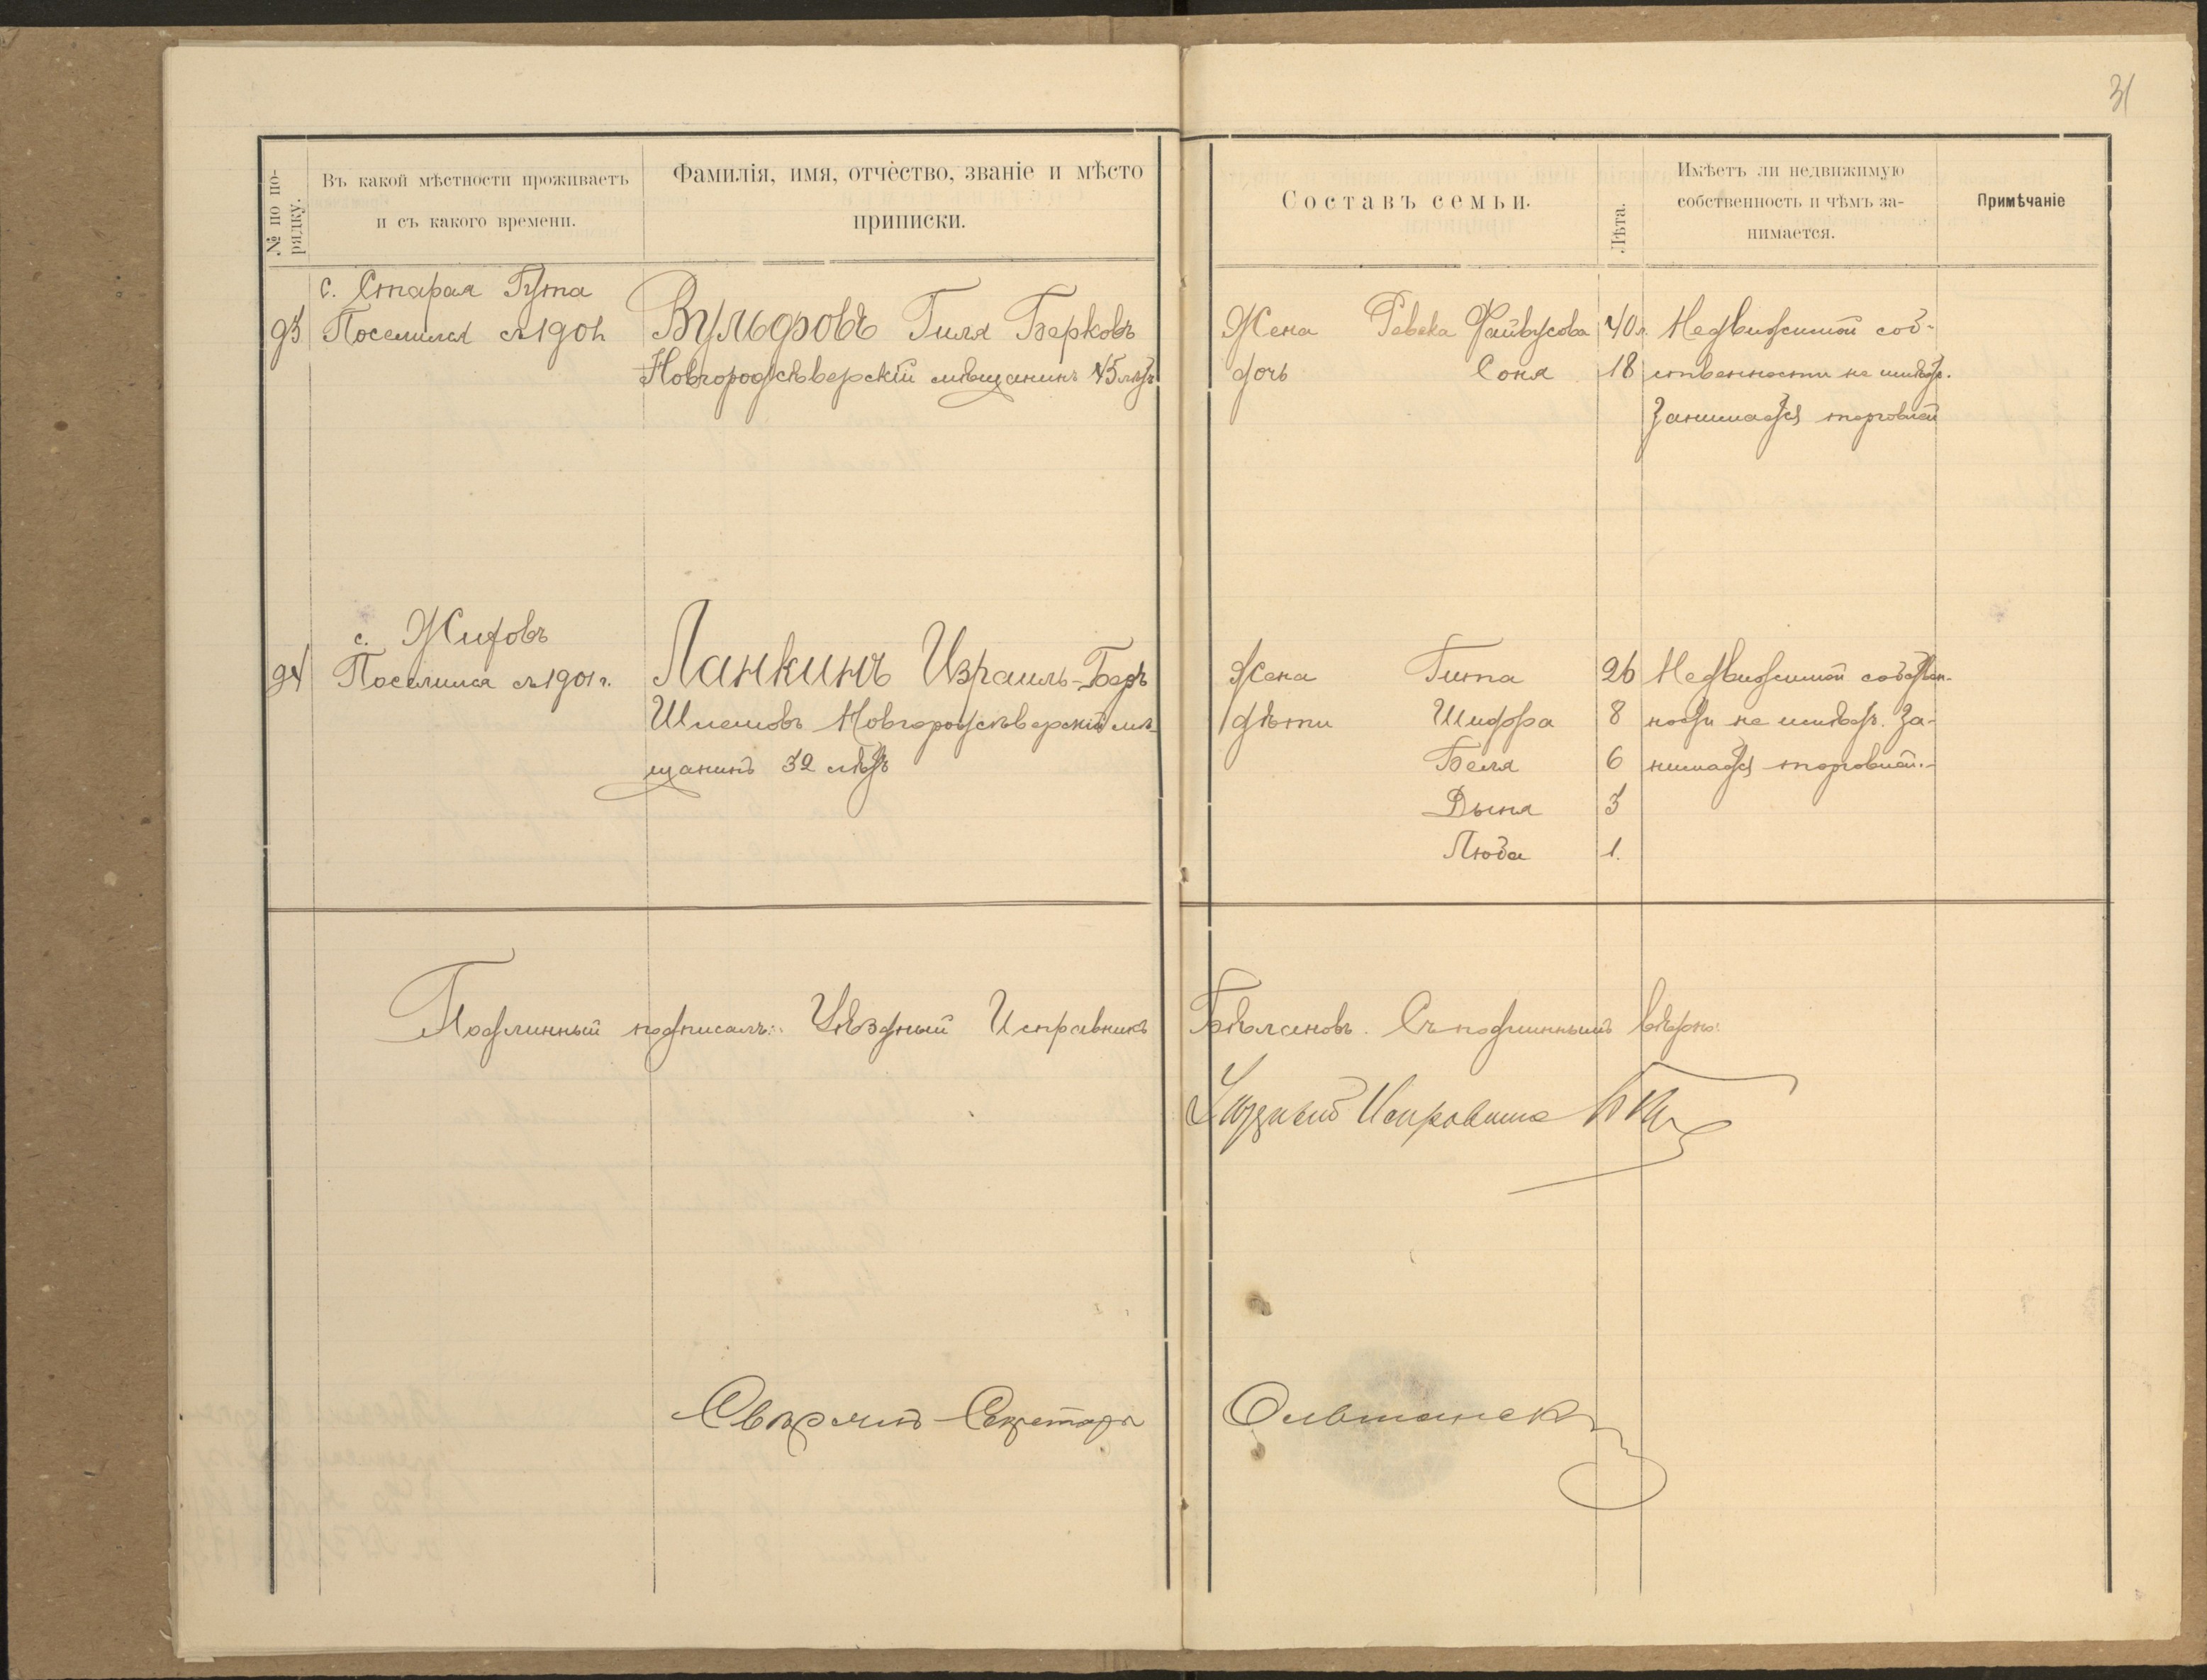 31
№ по по-
рядку.
Въ какой мѣстности проживаетъ
и съ какого времени.
Фамилія, имя, отчество, званіе и мѣсто
приписки.
Составъ семьи.
Лѣта.
Имѣетъ ли недвижимую
собственность и чѣмъ за-
нимается.
Примѣчаніе
с. Старая Гута
93 Поселился съ 190 Вульфовъ Гиля Берковъ Жена Ревека Файвусова 40 л. Недвижимой соб-
Новгородсѣверскій мѣщанинъ 45 лѣтъ дочь Соня 18 ственности не имѣетъ.
Занимается торговлей
с. Жиховъ
94 Поселился съ 1901 г. Ланкинъ Израиль-Беръ Жена Гита 26 Недвижимой собствен-
Новгородсѣверскій мѣ- дѣти Шифра 8 ности не имѣетъ. За-
щанинъ 32 лѣтъ Беля 6 нимается торговлей.-
Дыня 3
Люба 1.
Подлинный подписалъ: Уѣздный Исправникъ Бѣлановъ. Съ подлиннымъ вѣрно:
Уѣздный Исправникъ
Свѣрялъ Секретарь